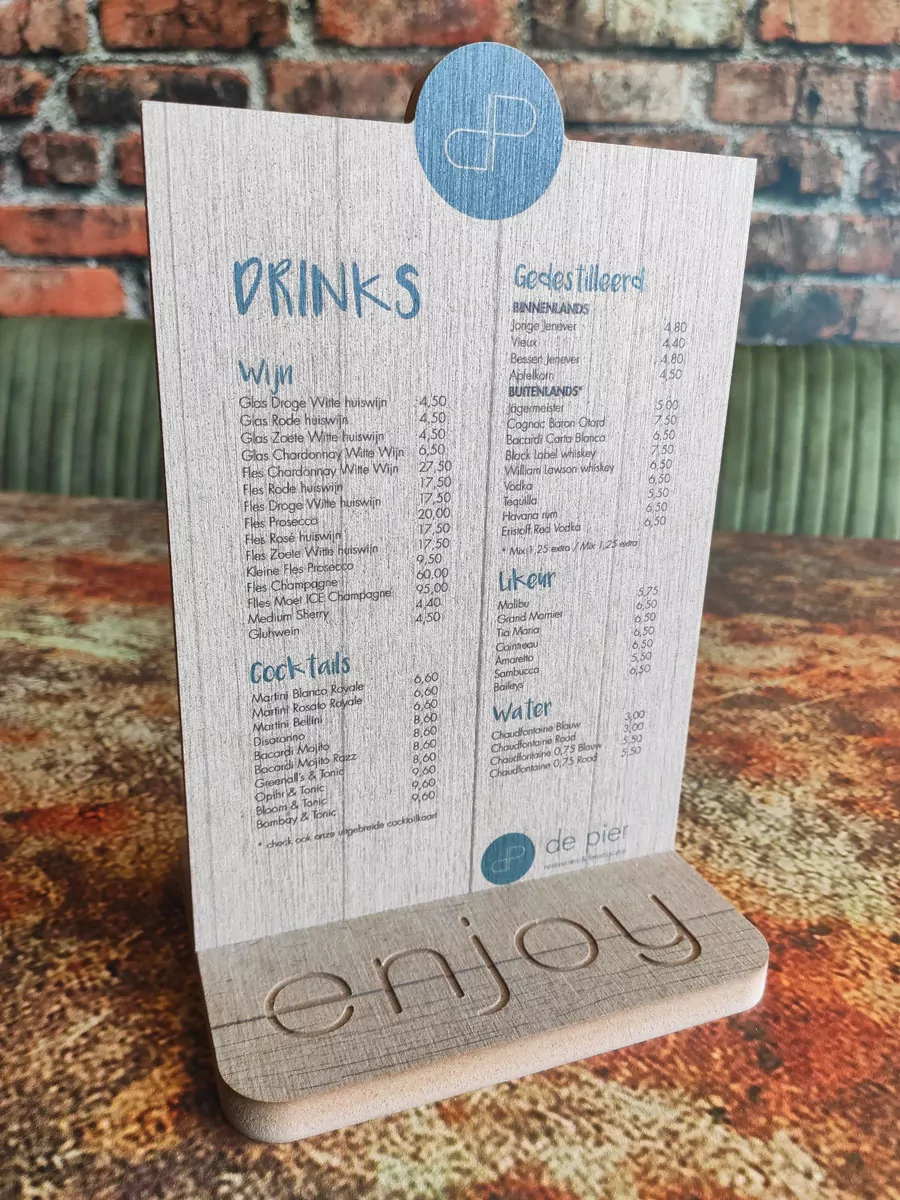 dP
DRINKS
Wijn
Glas Droge Witte huiswijn 4,50
Glas Rode huiswijn 4,50
Glas Zoete Witte huiswijn 4,50
Glas Chardonnay Witte Wijn 6,50
Fles Chardonnay Witte Wijn 27,50
Fles Rode huiswijn 17,50
Fles Droge Witte huiswijn 17,50
Fles Prosecco 20,00
Fles Rosé huiswijn 17,50
Fles Zoete Witte huiswijn 17,50
Kleine Fles Prosecco 9,50
Fles Champagne 60,00
Flles Moet ICE Champagne 95,00
Medium Sherry 4,40
Gluhwein 4,50
Cocktails
Martini Blanco Royale 6,60
Martini Rosato Royale 6,60
Martini Bellini 6,60
Disaronno 8,60
Bacardi Mojito 8,60
Bacardi Mojito Razz 8,60
Greenall's & Tonic 8,60
Opihr & Tonic 9,60
Bloom & Tonic 9,60
Bombay & Tonic 9,60
* check ook onze uitgebreide cocktailkaart
Gedestilleerd
BINNENLANDS
Jonge Jenever 4,80
Vieux 4,40
Bessen Jenever 4,80
Apfelkorn 4,50
BUITENLANDS*
Jägermeister 5,00
Cognac Baron Otard 7,50
Bacardi Carta Blanca 6,50
Black Label whiskey 7,50
William Lawson whiskey 6,50
Vodka 6,50
Tequilla 5,50
Havana rum 6,50
Eristoff Red Vodka 6,50
* Mix 1,25 extra / Mix 1,25 extra
Likeur
Malibu 5,75
Grand Marnier 6,50
Tia Maria 6,50
Cointreau 6,50
Amaretto 6,50
Sambucca 5,50
Baileys 6,50
Water
Chaudfontaine Blauw 3,00
Chaudfontaine Rood 3,00
Chaudfontaine 0,75 Blauw 5,50
Chaudfontaine 0,75 Rood 5,50
dP de pier
enjoy